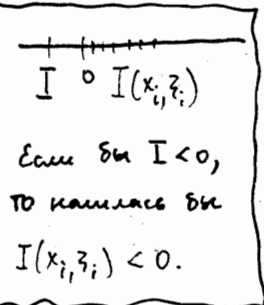 I 0 I(xᵢ, ξᵢ)
Если бы I < 0,
то нашлась бы
I(xᵢ, ξᵢ) < 0.